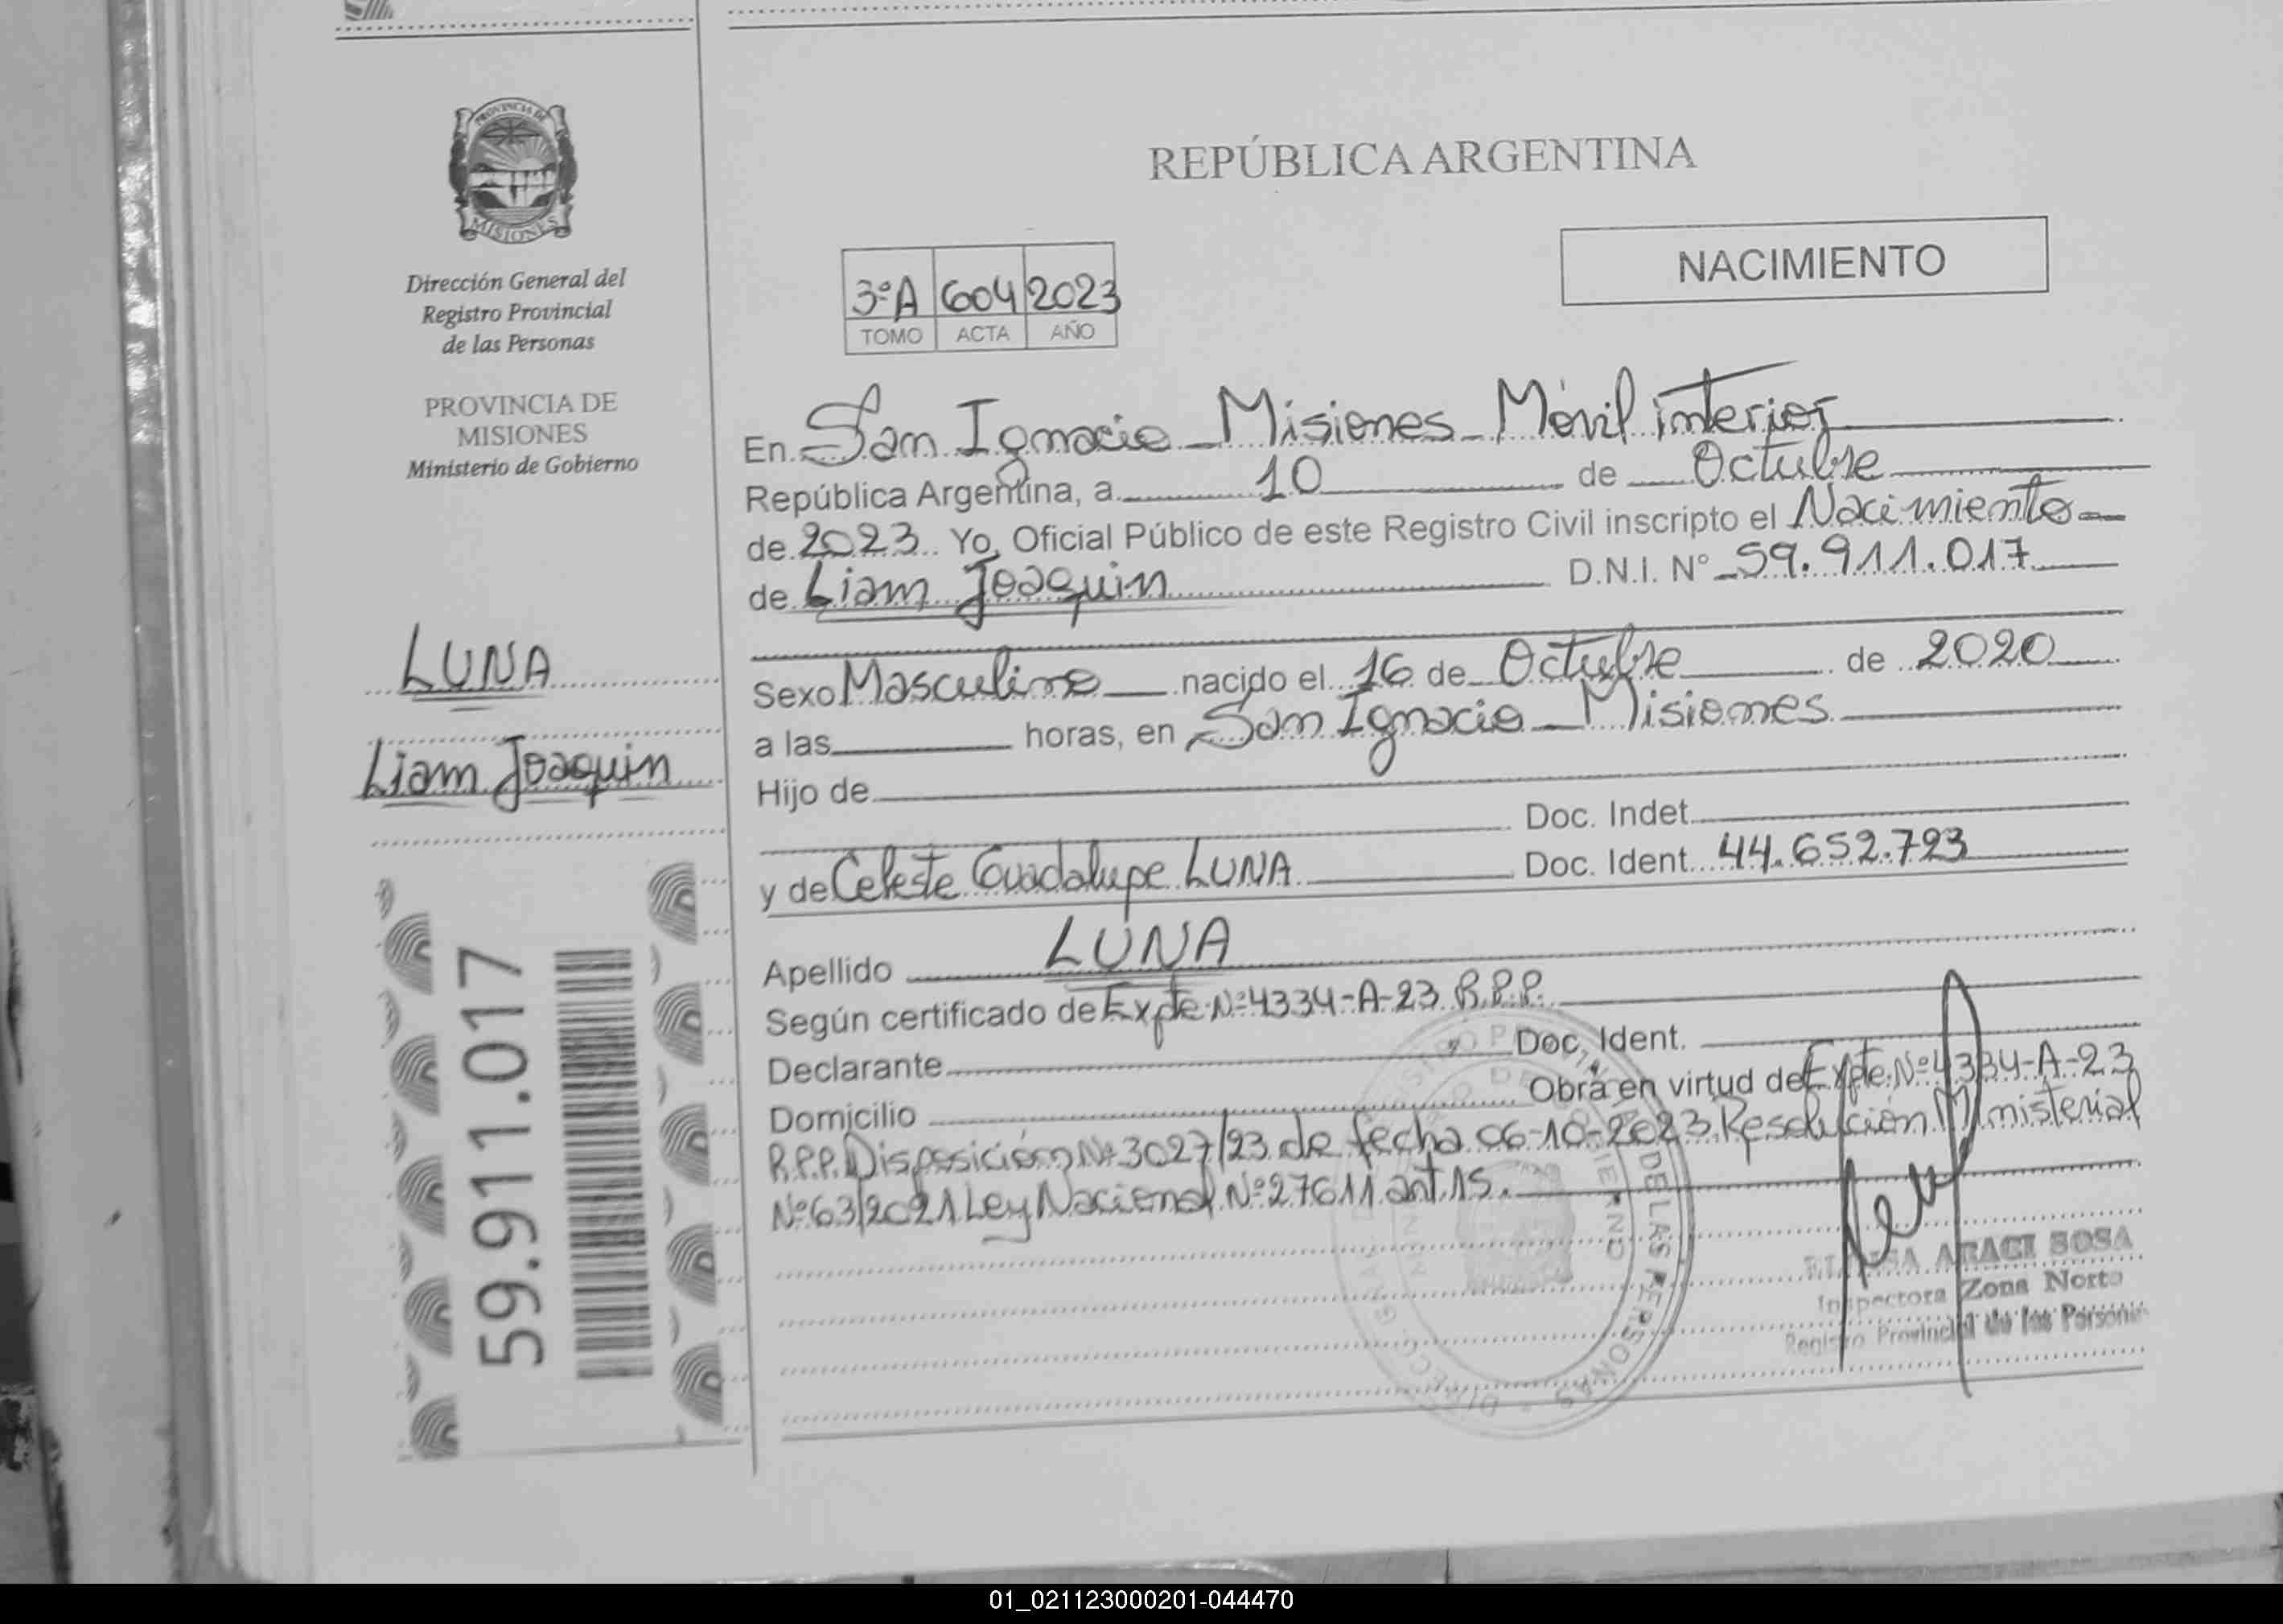 PROVINCIA DE
MISIONES
Dirección General del
Registro Provincial
de las Personas
PROVINCIA DE
MISIONES
Ministerio de Gobierno
LUNA
Liam Joaquin
59.911.017
REPÚBLICA ARGENTINA
NACIMIENTO
3ºA 604 2023
TOMO ACTA AÑO
En San Ignacio Misiones Móvil interior
República Argentina, a 10 de Octubre
de 2023 Yo, Oficial Público de este Registro Civil inscripto el Nacimiento
de Liam Joaquin D.N.I. Nº 59.911.017
Sexo Masculino nacido el 16 de Octubre de 2020
a las horas, en San Ignacio Misiones
Hijo de
Doc. Indet.
y de Celeste Guadalupe LUNA Doc. Ident. 44.652.723
Apellido LUNA
Según certificado de Expte Nº 4334-A-23 R.P.P.
Declarante Doc. Ident.
Domicilio Obra en virtud de Expte. Nº 4334-A-23
R.P.P. Disposición Nº 3027/23 de fecha 06-10-2023 Resolución Ministerial
Nº 63/2021 Ley Nacional Nº 27611 art. 15.
ARACI SOSA
Inspectora Zona Norte
Registro Provincial de las Personas
DE LAS PERSONAS
01_021123000201-044470